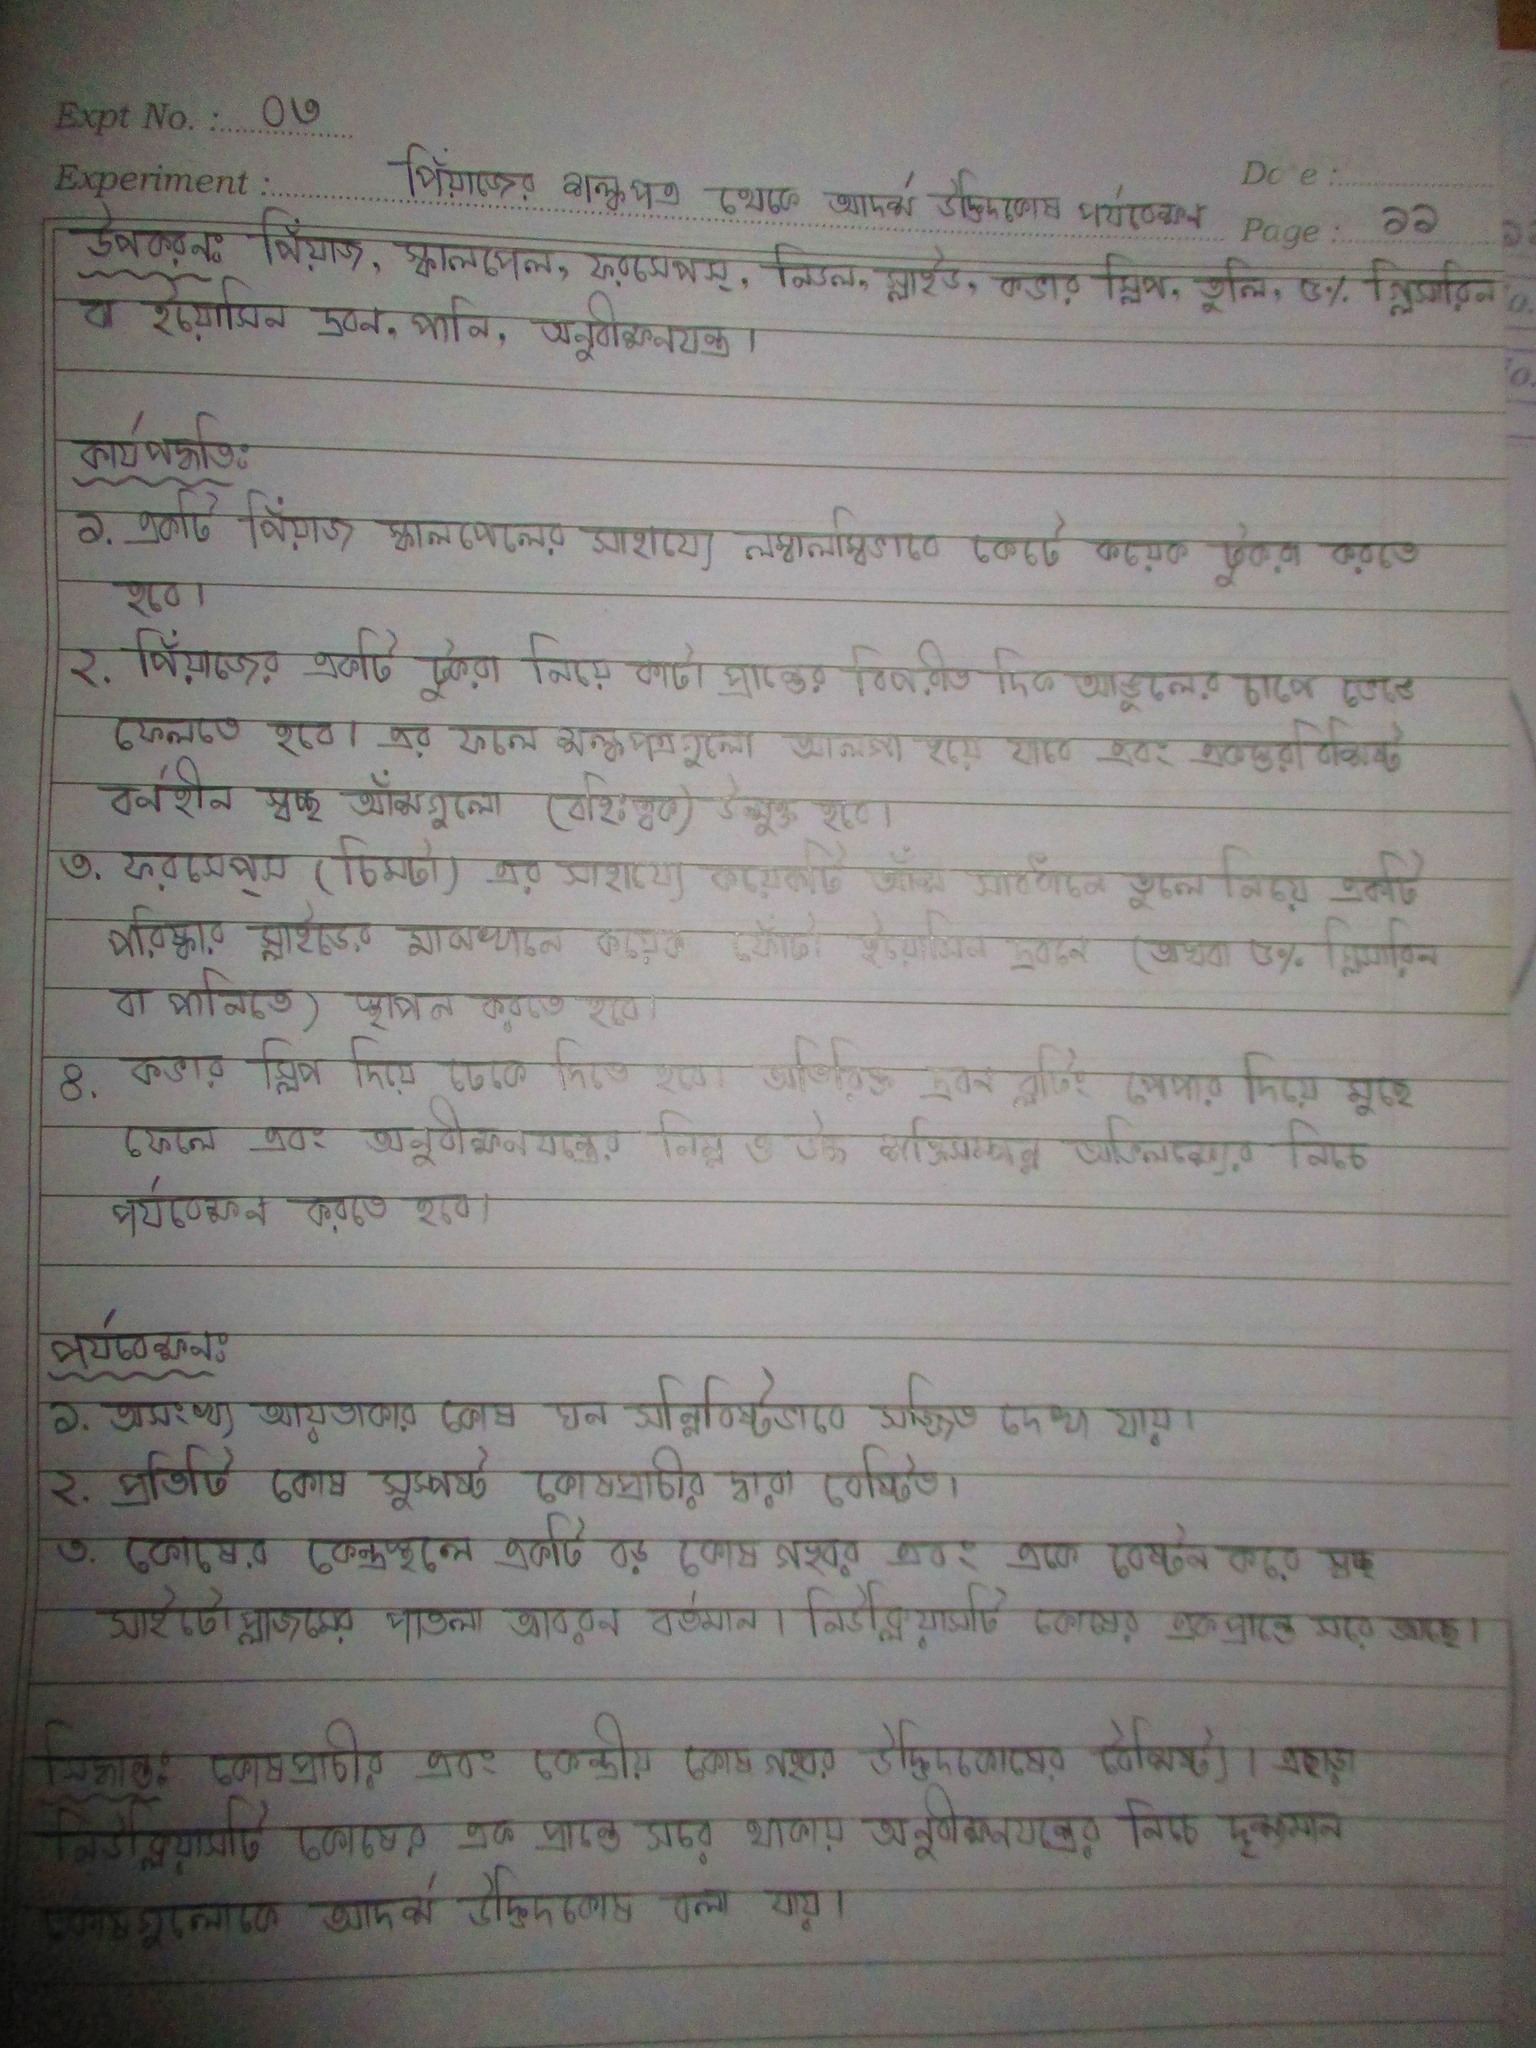 Expt No. : ০৩
Experiment : পিঁয়াজের শল্কপত্র থেকে আদর্শ উদ্ভিদকোষ পর্যবেক্ষন
Date :
Page : ১১
উপকরনঃ পিঁয়াজ, স্কালপেল, ফরসেপস্, নিডল, স্লাইড, কভার স্লিপ, তুলি, ৫% গ্লিসারিন
বা ইয়োসিন দ্রবন, পানি, অনুবীক্ষনযন্ত্র।
কার্যপদ্ধতিঃ
১. একটি পিঁয়াজ স্কালপেলের সাহায্যে লম্বালম্বিভাবে কেটে কয়েক টুকরা করতে
হবে।
২. পিঁয়াজের একটি টুকরা নিয়ে কাটা প্রান্তের বিপরীত দিক আঙুলের চাপে ভেঙে
ফেলতে হবে। এর ফলে শল্কপত্রগুলো আলগা হয়ে যাবে এবং একস্তরবিশিষ্ট
বর্নহীন স্বচ্ছ আঁশগুলো (বহিঃত্বক) উন্মুক্ত হবে।
৩. ফরসেপ্স (চিমটা) এর সাহায্যে কয়েকটি আঁশ সাবধানে তুলে নিয়ে একটি
পরিষ্কার স্লাইডের মাঝখানে কয়েক ফোঁটা ইয়োসিন দ্রবনে (অথবা ৫% গ্লিসারিন
বা পানিতে) স্থাপন করতে হবে।
৪. কভার স্লিপ দিয়ে ঢেকে দিতে হবে। অতিরিক্ত দ্রবন ব্লটিং পেপার দিয়ে মুছে
ফেলে এবং অনুবীক্ষনযন্ত্রের নিম্ন ও উচ্চ শক্তিসম্পন্ন অভিলক্ষ্যের নিচে
পর্যবেক্ষন করতে হবে।
পর্যবেক্ষনঃ
১. অসংখ্য আয়তাকার কোষ ঘন সন্নিবিষ্টভাবে সজ্জিত দেখা যায়।
২. প্রতিটি কোষ সুস্পষ্ট কোষপ্রাচীর দ্বারা বেষ্টিত।
৩. কোষের কেন্দ্রস্থলে একটি বড় কোষ গহ্বর এবং একে বেষ্টন করে স্বচ্ছ
সাইটোপ্লাজমের পাতলা আবরন বর্তমান। নিউক্লিয়াসটি কোষের একপ্রান্তে সরে আছে।
সিদ্ধান্তঃ কোষপ্রাচীর এবং কেন্দ্রীয় কোষ গহ্বর উদ্ভিদকোষের বৈশিষ্ট্য। এছাড়া
নিউক্লিয়াসটি কোষের এক প্রান্তে সরে থাকায় অনুবীক্ষনযন্ত্রের নিচে দৃশ্যমান
কোষগুলোকে আদর্শ উদ্ভিদকোষ বলা যায়।